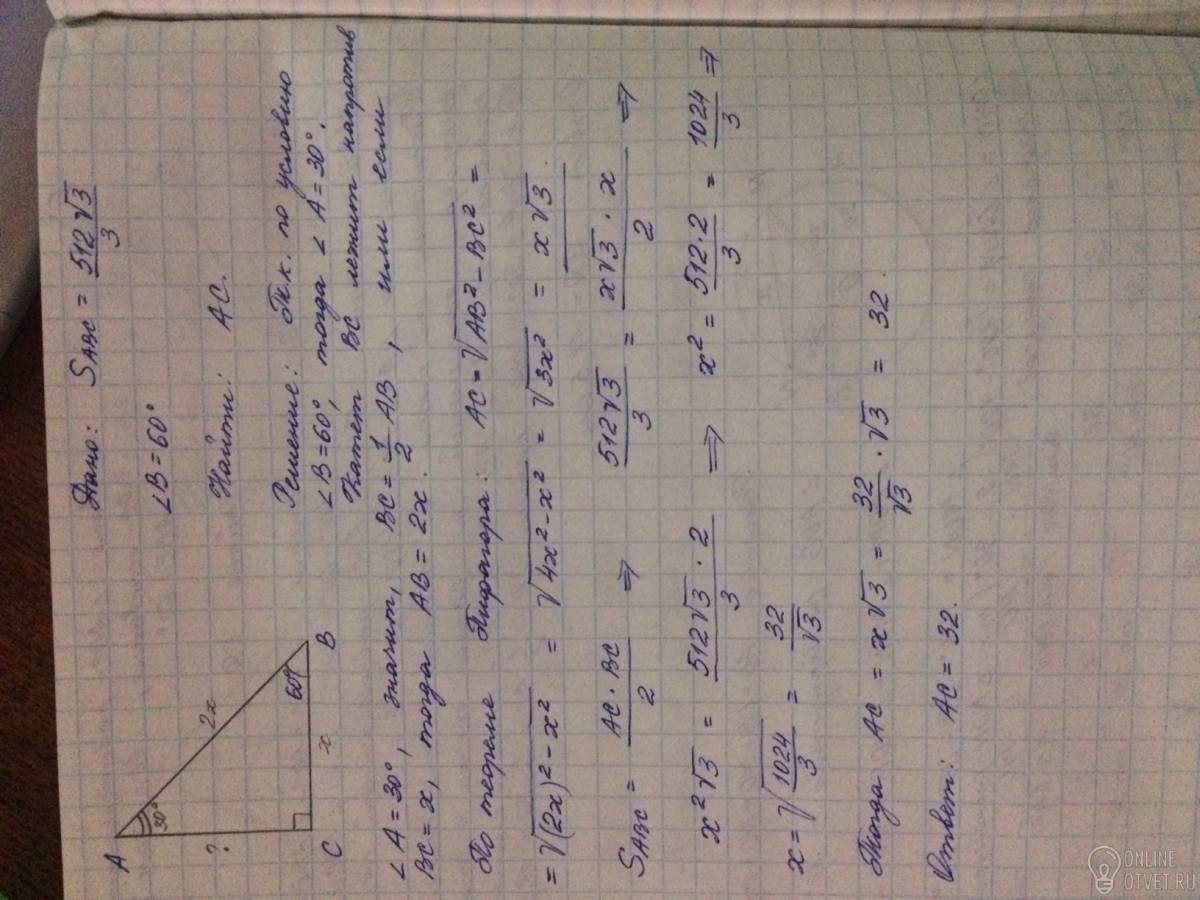 A
30°
2x
?
60°
C
x
B
Дано: S_ABC = 512√3/3
∠B=60°
Найти: AC.
Решение: Т.к. по условию
∠B=60°, тогда ∠A=30°.
Катет BC лежит напротив
∠A=30°, значит, BC = 1/2 AB, или если
BC=x, тогда AB=2x.
По теореме Пифагора: AC = √(AB² - BC²) =
= √((2x)² - x²) = √(4x² - x²) = √(3x²) = x√3
S_ABC = AC·BC/2 ⇒ 512√3/3 = x√3·x/2 ⇒
x²√3 = 512√3·2/3 ⇒ x² = 512·2/3 = 1024/3 ⇒
x = √(1024/3) = 32/√3
Тогда AC = x√3 = 32/√3 · √3 = 32.
Ответ: AC = 32.
ONLINE
OTVET.RU